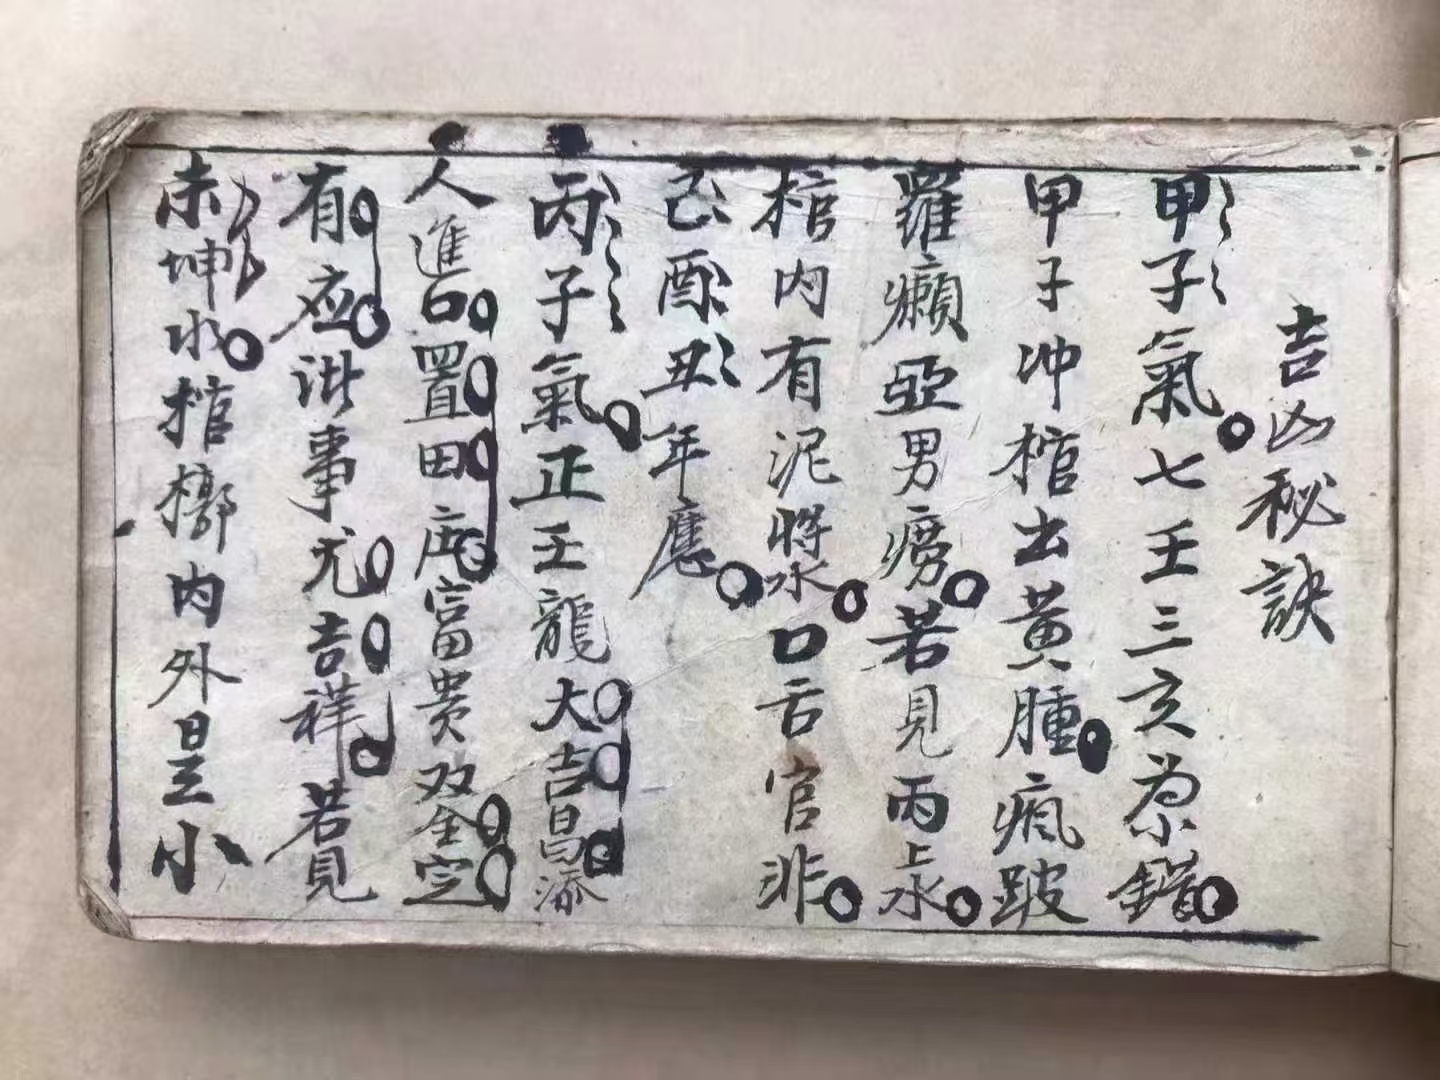 吉凶秘訣
甲子氣七壬三亥為錯
甲子冲棺出黃腫瘋跛
羅癩亞男癆若見丙上水
棺内有泥將水口舌官非
巳酉丑年應
丙子氣正壬龍大吉昌添
人進口置田庄富贵双全定
有应诎事尤吉祥若見
未坤水棺槨内外是小